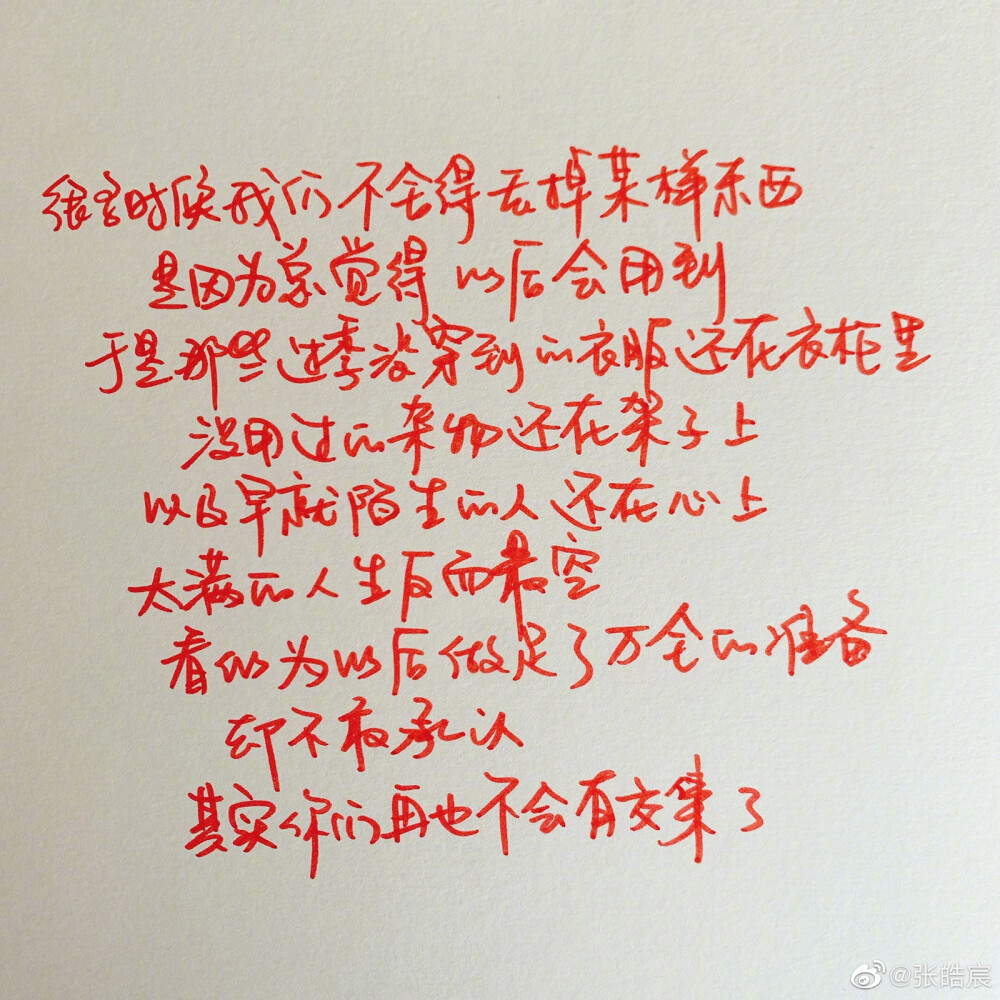 很多时候我们不舍得丢掉某样东西
是因为总觉得以后会用到
于是那些过季没穿到的衣服还在衣柜里
没用过的杂物还在架子上
以及早就陌生的人还在心上
太满的人生反而最空
看似为以后做足了万全的准备
却不敢承认
其实你们再也不会有交集了
@张皓宸